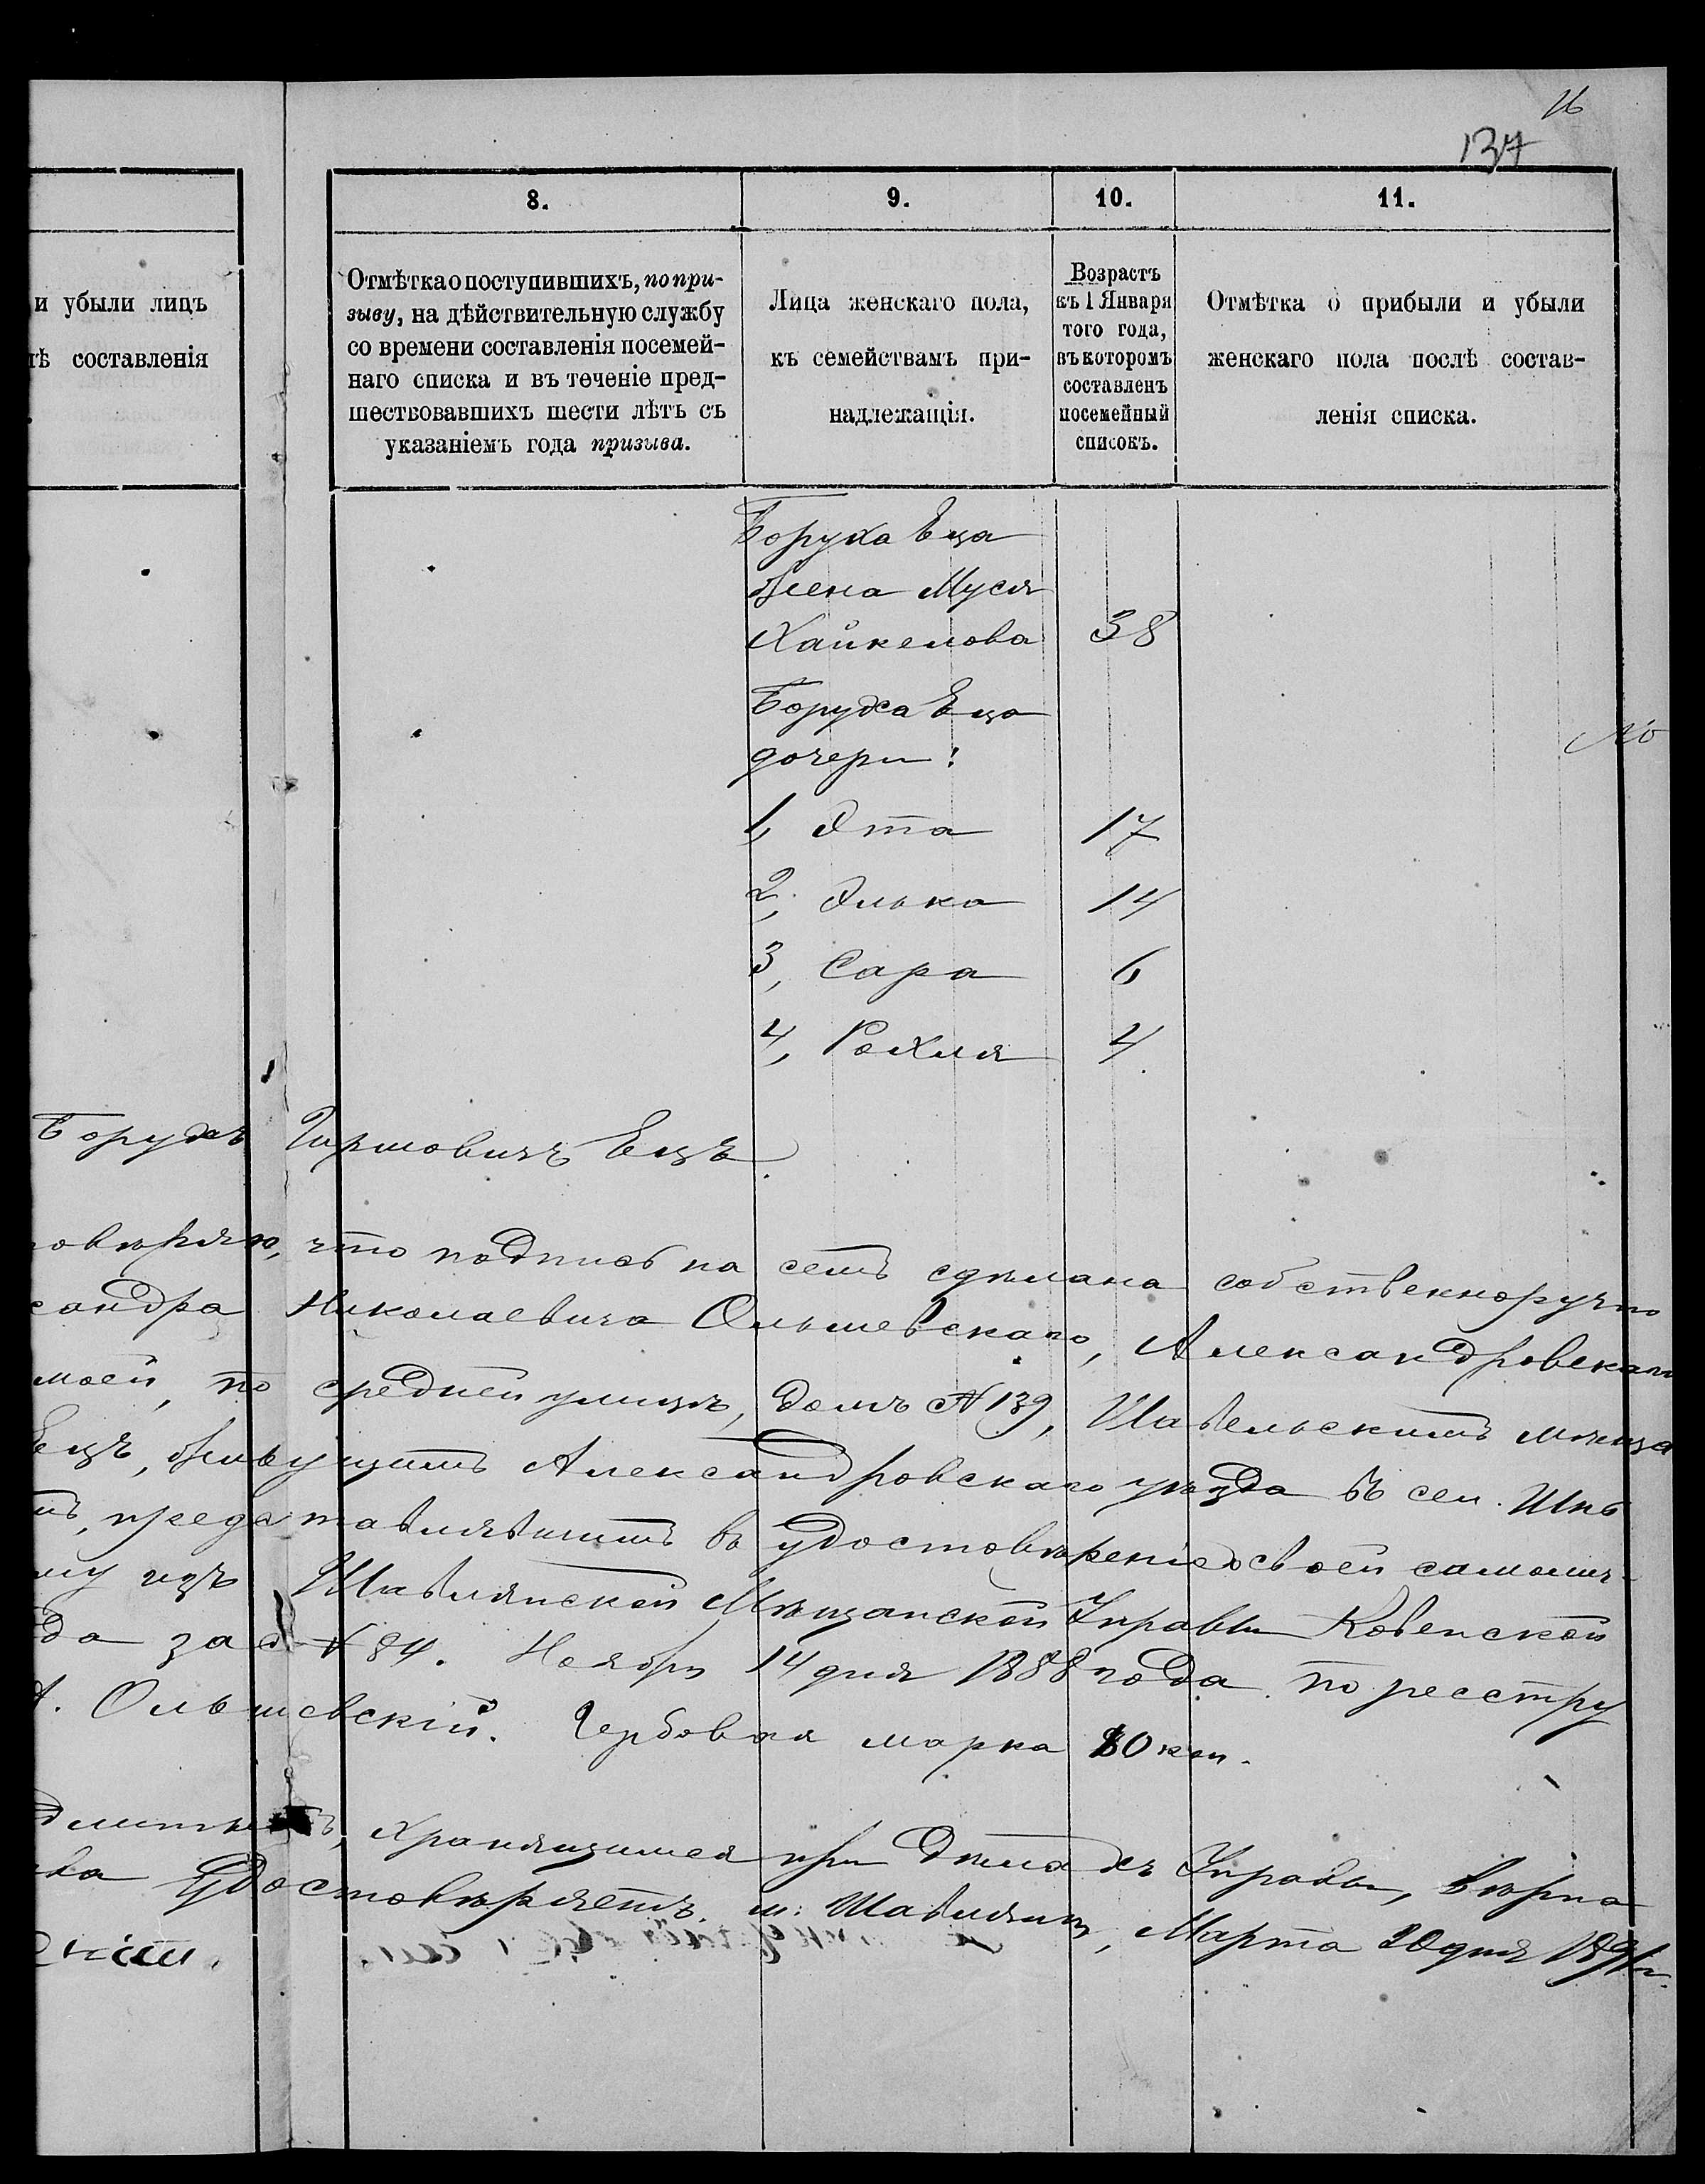 16
137
8.
9.
10.
11.
и убыли лицъ
лѣ составленія
Отмѣтка о поступившихъ, по при-
зыву, на дѣйствительную службу
со времени составленія посемей-
наго списка и въ теченіе пред-
шествовавшихъ шести лѣтъ съ
указаніемъ года призыва.
Лица женскаго пола,
къ семействамъ при-
надлежащія.
Возрастъ
къ 1 Января
того года,
въ которомъ
составленъ
посемейный
списокъ.
Отмѣтка о прибыли и убыли
женскаго пола послѣ состав-
ленія списка.
Боруха Еца
жена Муся
Хайкелова 38
Боруха Еца
дочери:
1, Эта 17
2, Элька 14
3, Сара 6
4, Рохля 4
Борухъ Гиршовичъ Ецъ
овѣряю, что подпись на семъ сдѣлана собственноручно
сандра Николаевича Ольшевскаго, Александровскаго
моей, по средней улицѣ, домъ № 139, Шавельскимъ мѣща
Ецъ, живущимъ Александровскаго уѣзда въ сел.
мъ, представлявшимъ въ удостовѣреніе своей самолич-
му изъ Шавлянской Мѣщанской Управы Ковенской
да за № 84. Ноября 14 дня 1888 года. по реестру
А. Ольшевскій. Гербовая марка 80 коп.
хранящимся при дѣлахъ Управы, вѣрна
ва удостовѣряетъ. м: Шавляны, Марта 20 дня 1891 г.